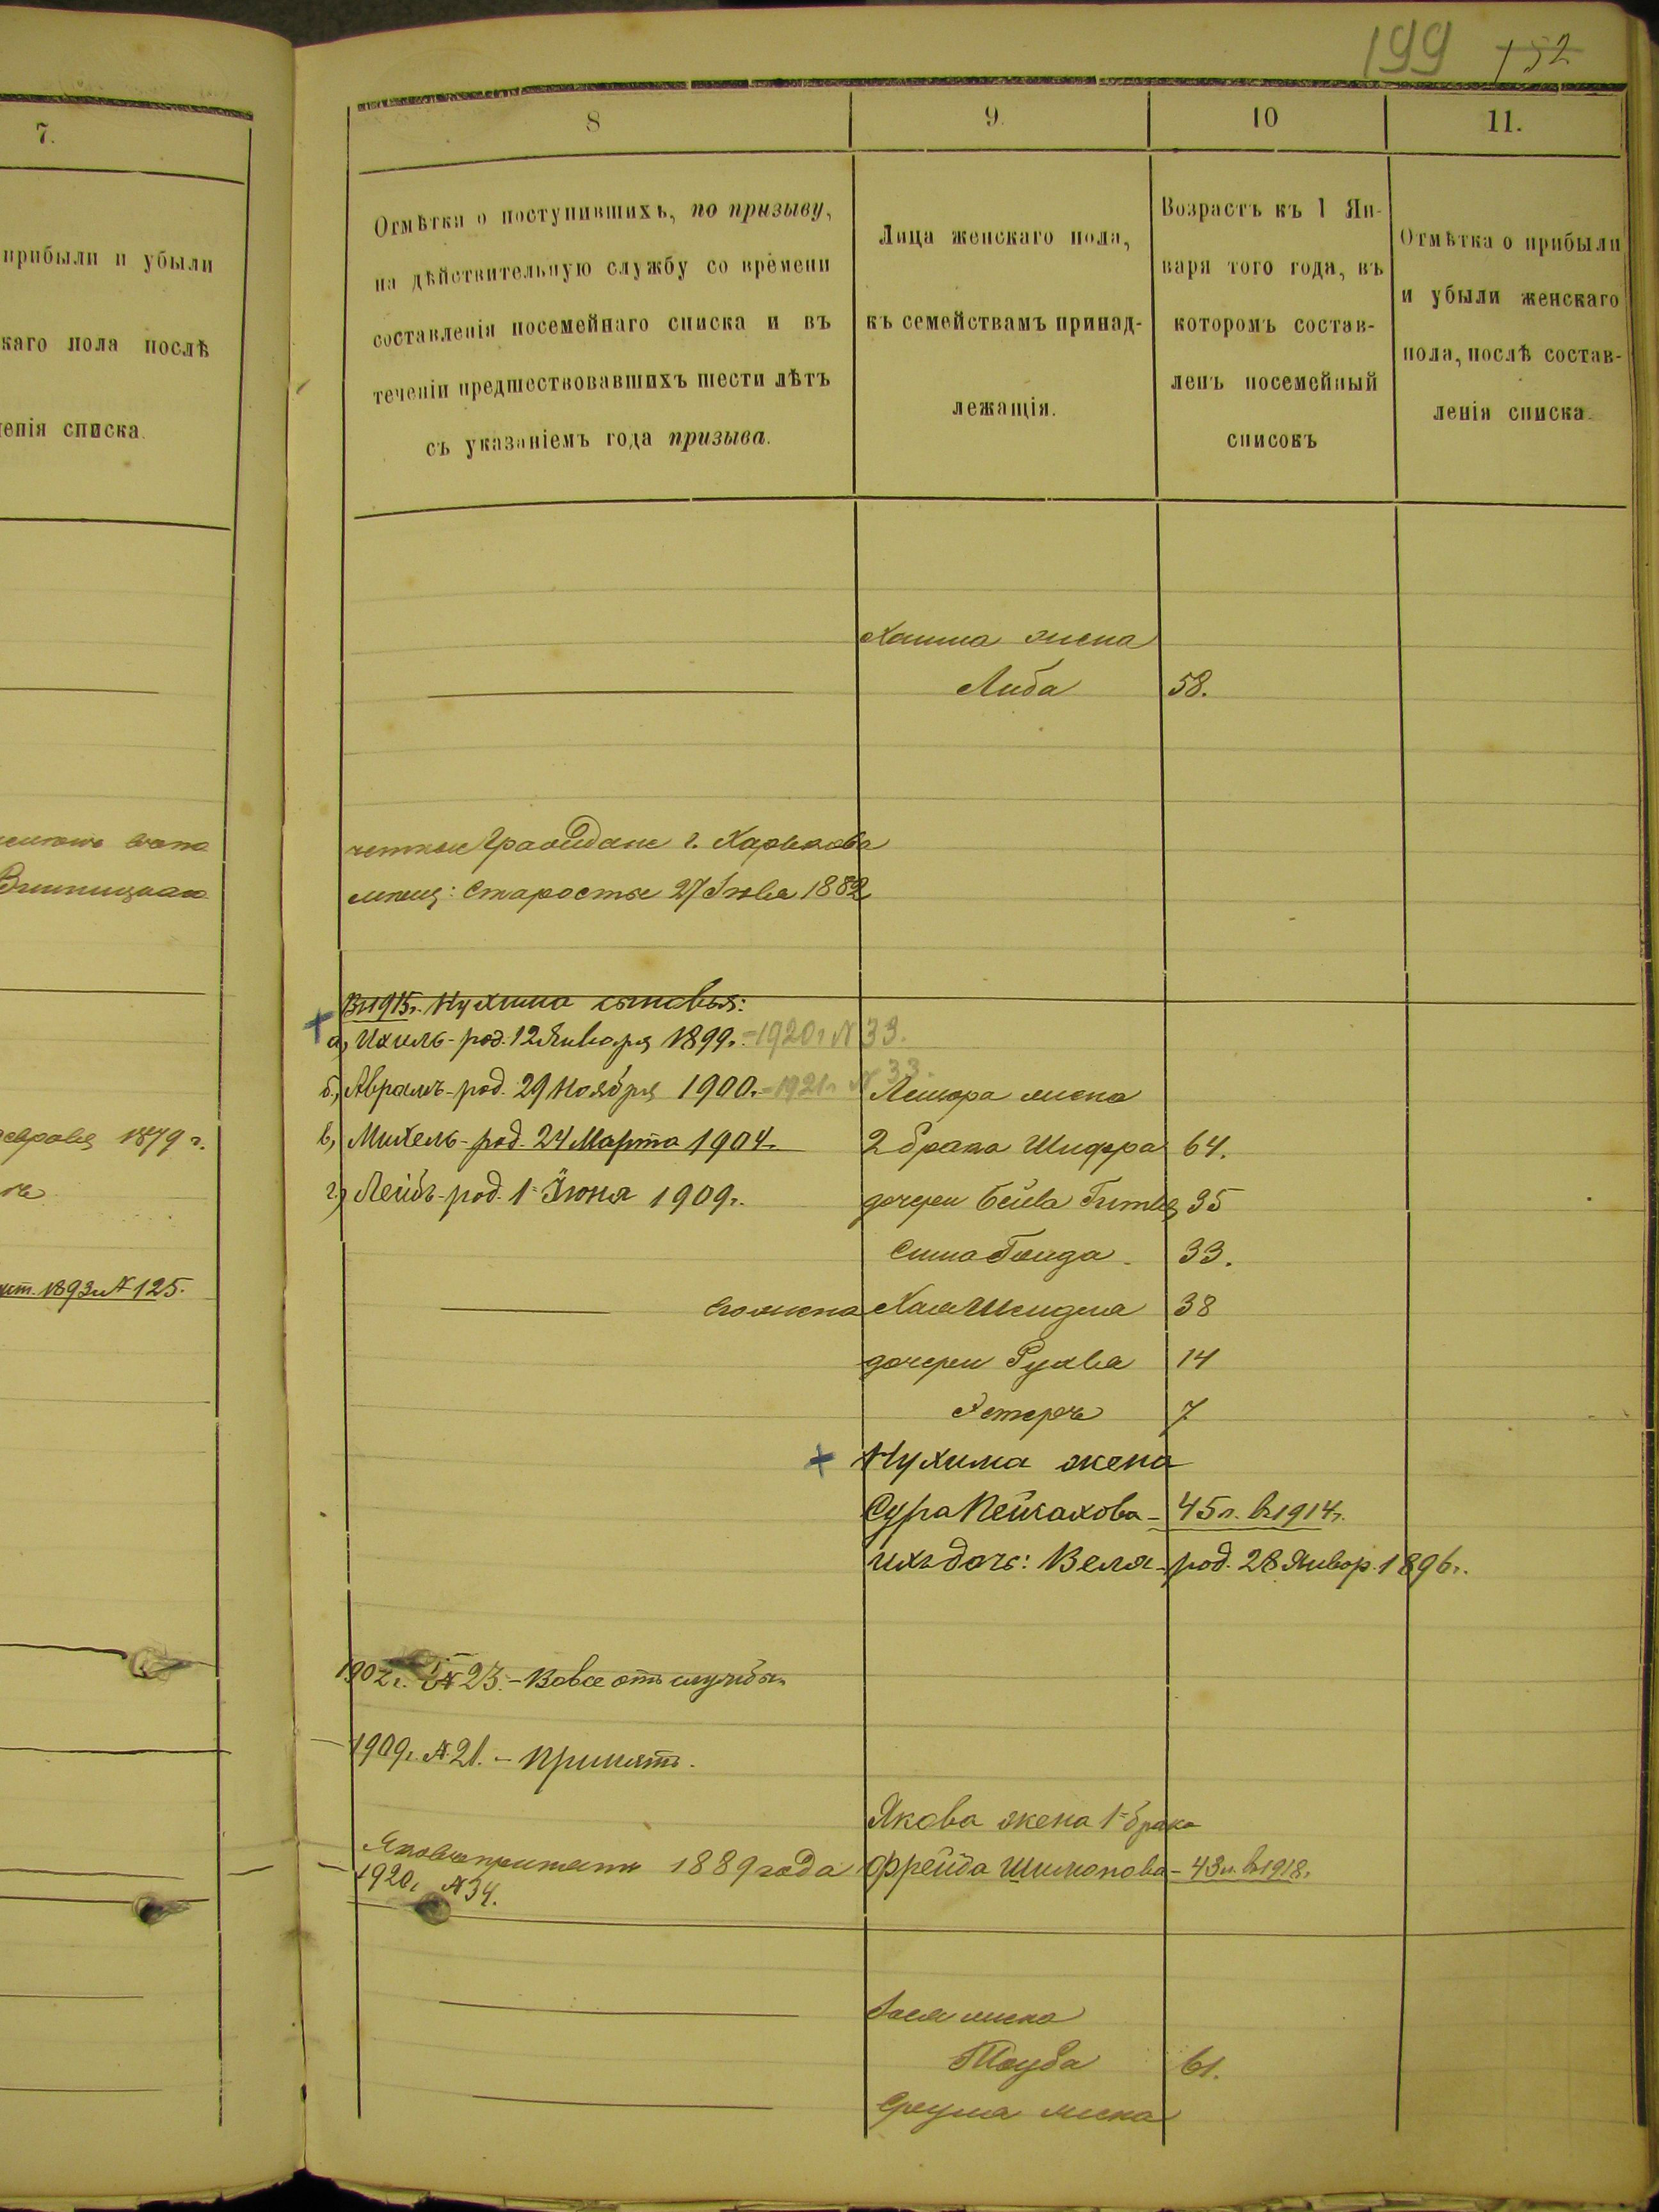 199 152
7.
прибыли и убыли
каго пола послѣ
ленія списка.
1879 г.
1893 г. № 125.
8
Отмѣтки о поступившихъ, по призыву,
на дѣйствительную службу со времени
составленія посемейнаго списка и въ
теченіи предшествовавшихъ шести лѣтъ
съ указаніемъ года призыва.
9.
Лица женскаго пола,
къ семействамъ принад-
лежащія.
10
Возрастъ къ 1 Ян-
варя того года, въ
которомъ состав-
ленъ посемейный
списокъ
11.
Отмѣтка о прибыли
и убыли женскаго
пола, послѣ состав-
ленія списка.
жена
Либа 58.
Граждане г. Харькова
Старосты 27 1882
Въ 1915г. Нухима сыновья:
а, Ихиль - род. 12 Января 1899г. - 1920 г № 33.
б, Аврамъ - род. 29 Ноября 1900г. - 1921г № 33.
в, Михель - род. 24 Марта 1904г.
г, Лейбъ - род. 1 Іюня 1909г.
жена
2 брака Шифра 64.
дочери Бейла Гитля 35
33.
его жена Хая Шейдля 38
дочери Рухля 14
Эстеръ 7
Нухима жена
Сура Пейсахова - 45 л. въ 1914г.
ихъ дочь: Веля - род. 28 Январ. 1896г.
1902 г. № 23. - Вовсе отъ службы
1909г. № 21. - Принятъ.
Якова жена 1 брака
1889 года
Фрейда Шимонова - 43 л. въ 1918г.
1920г № 34.
жена
Тауба 61.
жена